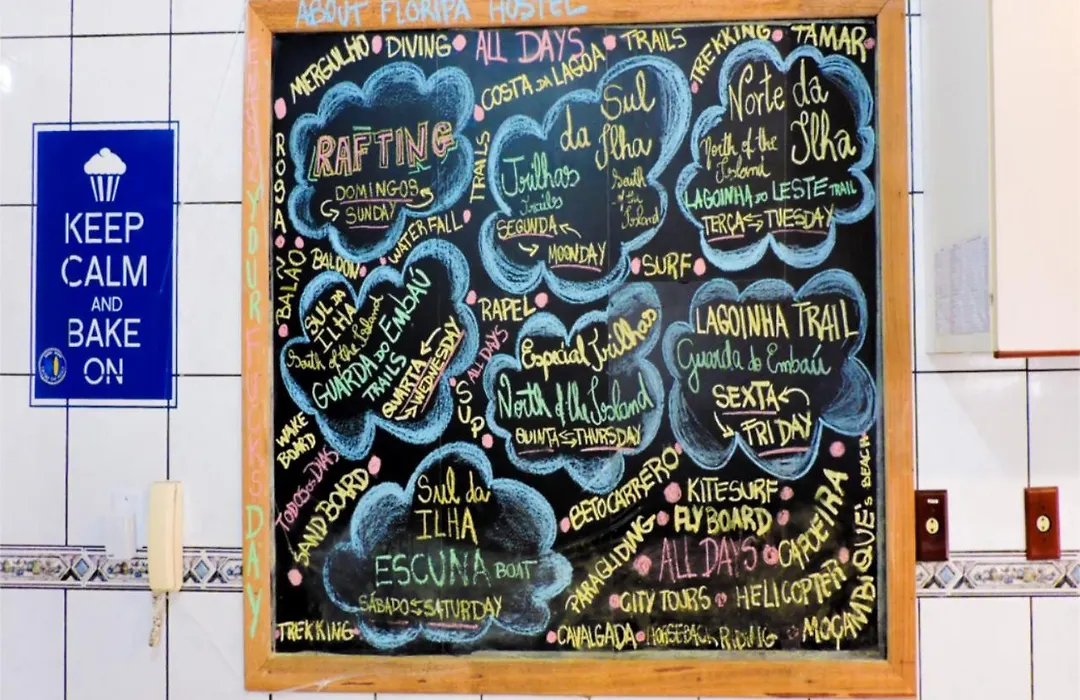 ABOUT FLORIPA HOSTEL
KEEP
CALM
AND
BAKE
ON
MERGULHO DIVING
ALL DAYS
TRAILS
TREKKING
TAMAR
COSTA DA LAGOA
RAFTING
DOMINGOS
SUNDAY
TRAILS
Sul
da Ilha
Trilhas
Trails
South
of the
Island
SEGUNDA
MOONDAY
Norte da
Ilha
North of the
Island
LAGOINHA DO LESTE TRAIL
TERÇA TUESDAY
ROSA
WATERFALL
BALÃO
BALOON
SUL DA
ILHA
South of the Island
GUARDA DO EMBAÚ
TRAILS
QUARTA
WEDNESDAY
SURF
RAPEL
ALL DAYS
SUP
Especial Trilhas
North of the Island
QUINTA THURSDAY
LAGOINHA TRAIL
Guarda do Embaú
SEXTA
FRIDAY
WAKE
BOARD
TODOS OS DIAS
SANDBOARD
Sul da
ILHA
ESCUNA BOAT
SÁBADO SATURDAY
TREKKING
BETO CARRERO
KITESURF
FLYBOARD
PARAGLIDING
ALL DAYS
CAPOEIRA
CITY TOURS
HELICOPTER
CAVALGADA
HORSEBACK RIDING
MOÇAMBIQUE'S BEACH
DAY